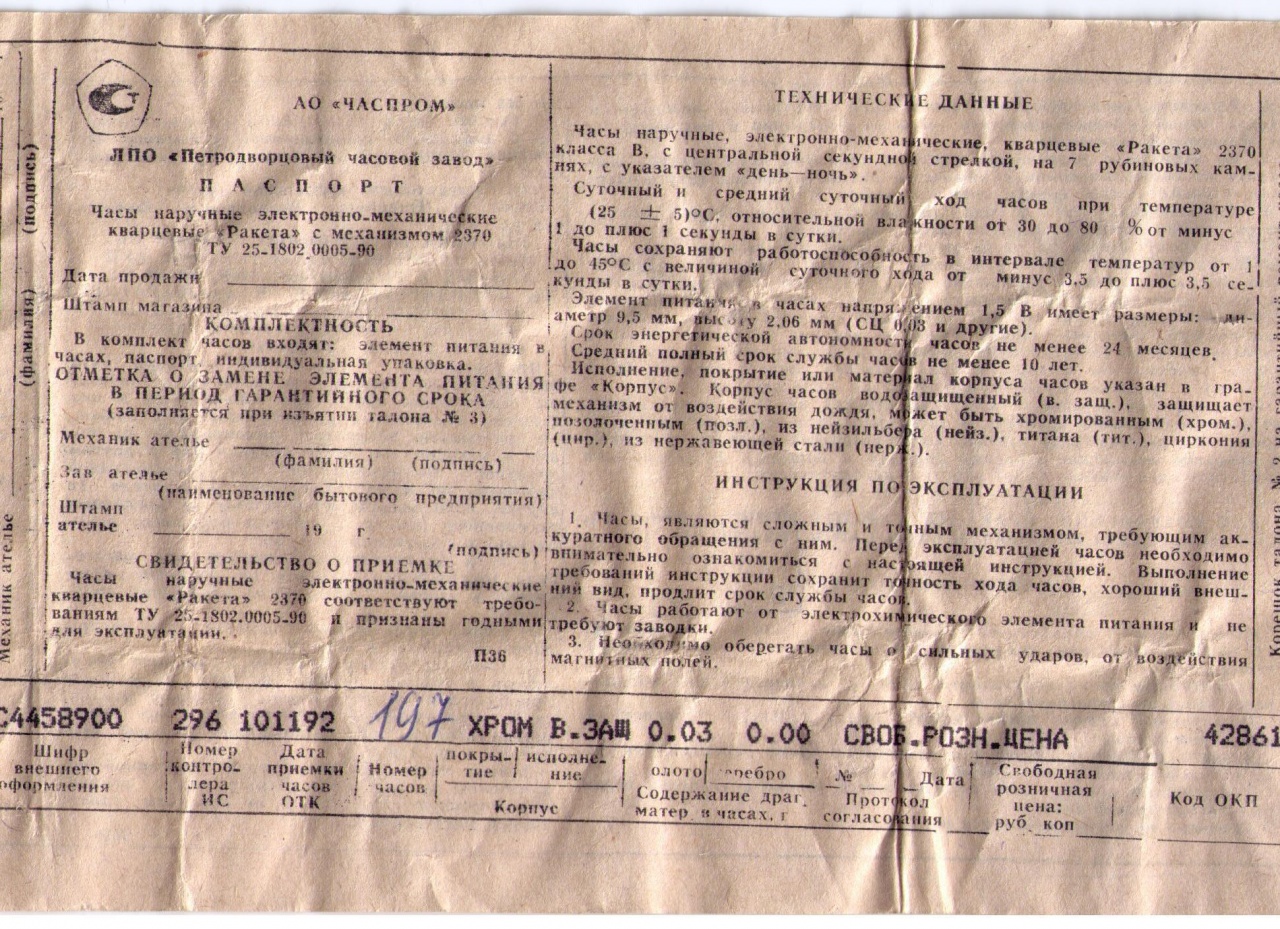 АО «ЧАСПРОМ»
ЛПО «Петродворцовый часовой завод»
ПАСПОРТ
Часы наручные электронно-механические
кварцевые «Ракета» с механизмом 2370
ТУ 25-1802.0005-90
Дата продажи
Штамп магазина
КОМПЛЕКТНОСТЬ
В комплект часов входят: элемент питания в
часах, паспорт, индивидуальная упаковка.
ОТМЕТКА О ЗАМЕНЕ ЭЛЕМЕНТА ПИТАНИЯ
В ПЕРИОД ГАРАНТИЙНОГО СРОКА
(заполняется при изъятии талона № 3)
Механик ателье
(фамилия) (подпись)
Зав ателье
(наименование бытового предприятия)
Штамп
ателье 19 г
(подпись)
СВИДЕТЕЛЬСТВО О ПРИЕМКЕ
Часы наручные электронно-механические
кварцевые «Ракета» 2370 соответствуют требо-
ваниям ТУ 25-1802.0005-90 и признаны годными
для эксплуатации.
П36
ТЕХНИЧЕСКИЕ ДАННЫЕ
Часы наручные, электронно-механические, кварцевые «Ракета» 2370
класса В, с центральной секундной стрелкой, на 7 рубиновых кам-
нях, с указателем «день—ночь».
Суточный и средний суточный ход часов при температуре
(25 ± 5)°С, относительной влажности от 30 до 80 % от минус
1 до плюс 1 секунды в сутки.
Часы сохраняют работоспособность в интервале температур от 1
до 45°С с величиной суточного хода от минус 3,5 до плюс 3,5 се-
кунды в сутки.
Элемент питания в часах напряжением 1,5 В имеет размеры: ди-
аметр 9,5 мм, высоту 2,06 мм (СЦ 0,03 и другие).
Срок энергетической автономности часов не менее 24 месяцев.
Средний полный срок службы часов не менее 10 лет.
Исполнение, покрытие или материал корпуса часов указан в гра-
фе «Корпус». Корпус часов водозащищенный (в. защ.), защищает
механизм от воздействия дождя, может быть хромированный (хром.),
позолоченным (позл.), из нейзильбера (нейз.), титана (тит.), циркония
(цир.), из нержавеющей стали (нерж.).
ИНСТРУКЦИЯ ПО ЭКСПЛУАТАЦИИ
1. Часы, являются сложным и точным механизмом, требующим ак-
куратного обращения с ним. Перед эксплуатацией часов необходимо
внимательно ознакомиться с настоящей инструкцией. Выполнение
требований инструкции сохранит точность хода часов, хороший внеш-
ний вид, продлит срок службы часов.
2. Часы работают от электрохимического элемента питания и не
требуют заводки.
3. Необходимо оберегать часы о сильных ударов, от воздействия
магнитных полей.
С4458900 296 101192 197 ХРОМ В.ЗАЩ 0.03 0.00 СВОБ.РОЗН.ЦЕНА 42861
Шифр
внешнего
оформления
Номер
контро-
лера
ИС
Дата
приемки
часов
ОТК
Номер
часов
покры-
тие
исполне-
ние
Корпус
золото серебро
Содержание драг.
матер. в часах, г
№ Дата
Протокол
согласования
Свободная
розничная
цена:
руб. коп
Код ОКП
Механик ателье (фамилия) (подпись)
Корешок талона № 2 на